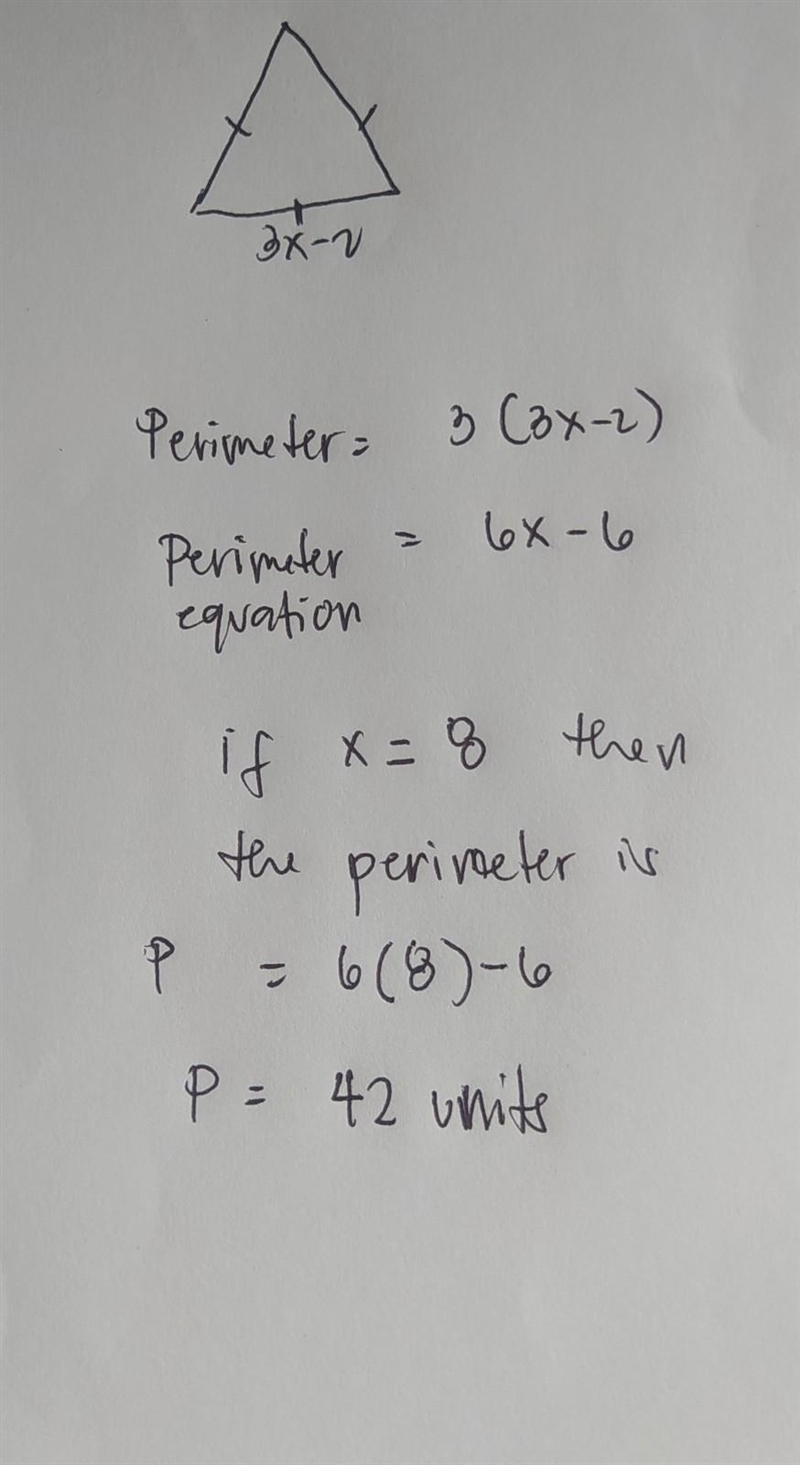 3x-2
Perimeter= 3(3x-2)
Perimeter = 6x-6
equation
if x=8 then
the perimeter is
P = 6(8)-6
P= 42 units